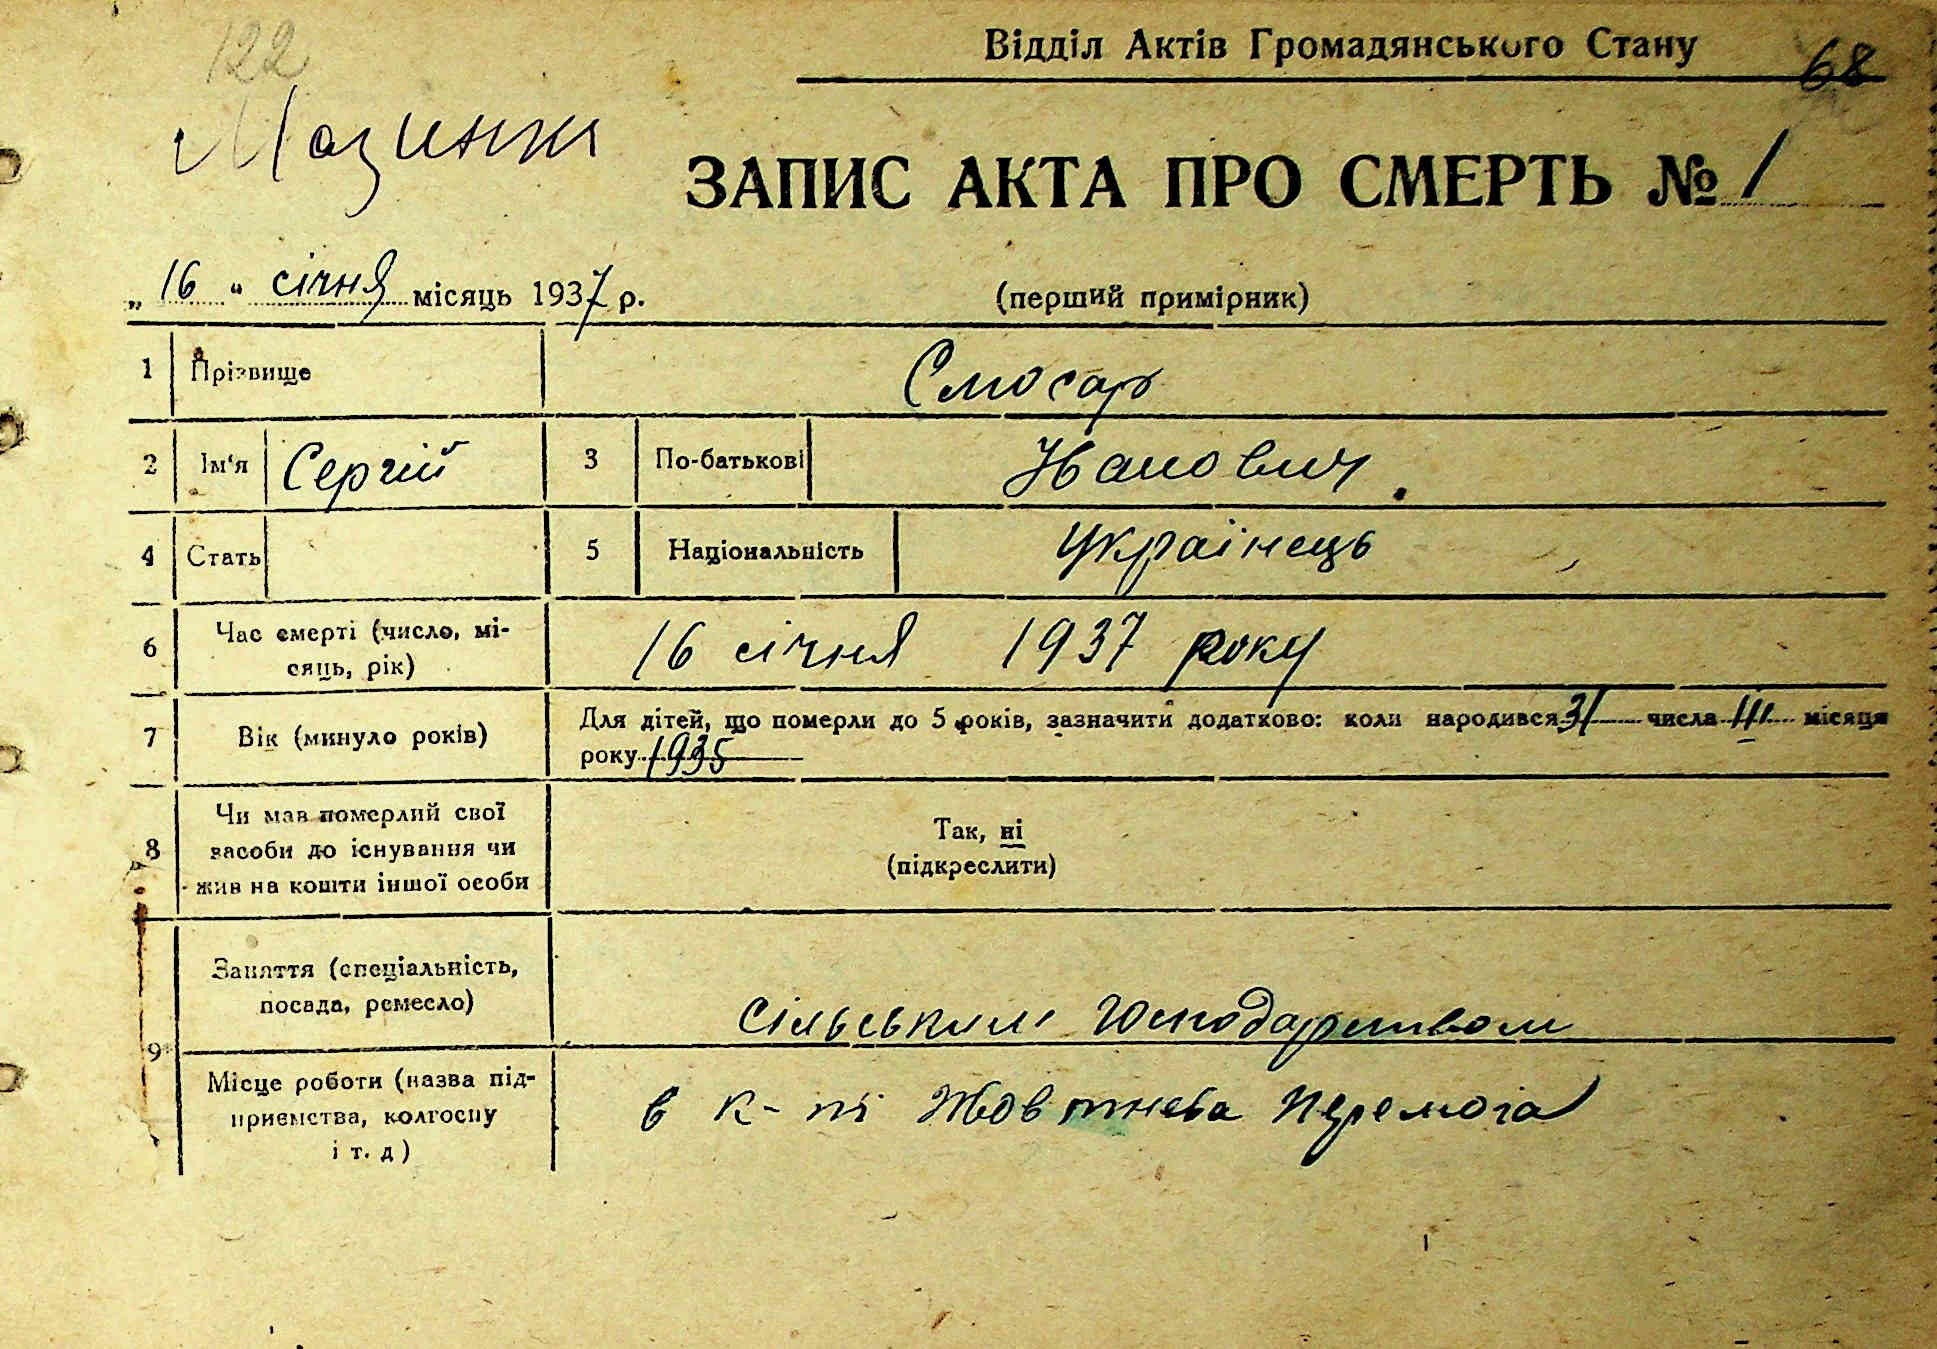 122
Відділ Актів Громадянського Стану
68
Мазинки
ЗАПИС АКТА ПРО СМЕРТЬ № 1
„ 16 “ січня місяць 1937 р. (перший примірник)
1 Прізвище Смосар
2 Ім‘я Сергій 3 По-батькові Иванович.
4 Стать 5 Національність Українець
6 Час смерті (число, мі-
сяць, рік) 16 січня 1937 року
7 Вік (минуло років) Для дітей, що померли до 5 років, зазначити додатково: коли народився 31 числа III місяця
року 1935
8 Чи мав померлий свої
засоби до існування чи
жив на кошти іншої особи
Так, ні
(підкреслити)
9 Заняття (спеціальність,
посада, ремесло) сільським господарством
Місце роботи (назва під-
приємства, колгоспу
і т. д)
в к-пі Жовтнева Перемога